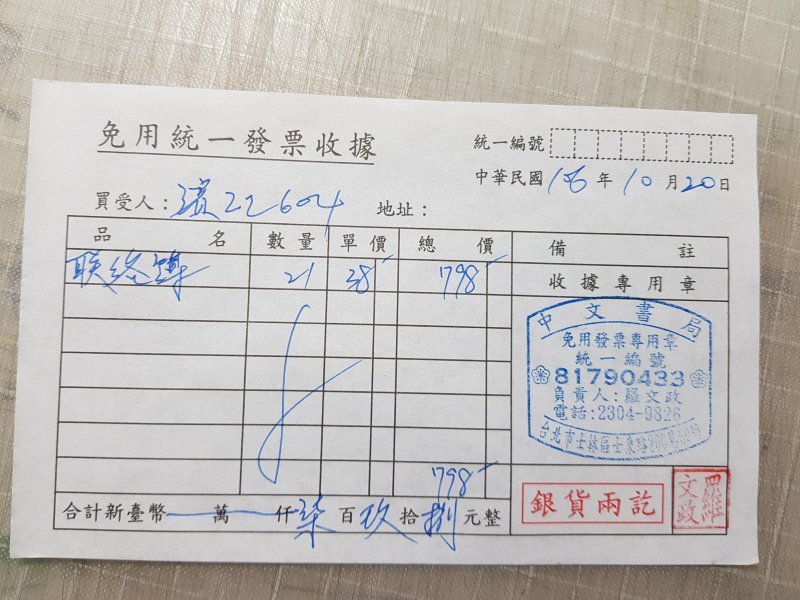 免用統一發票收據
統一編號
中華民國 106 年 10 月 20 日
買受人: 22604 地址:
品名 數量 單價 總價 備註
联络簿 21 38 798
收據專用章
中文書局
免用發票專用章
統一編號
81790433
負責人:羅文政
電話:2304-9826
台北市士林區士東路
798
合計新臺幣 萬 仟 柒 百 玖 拾 捌 元整
銀貨兩訖
羅文政